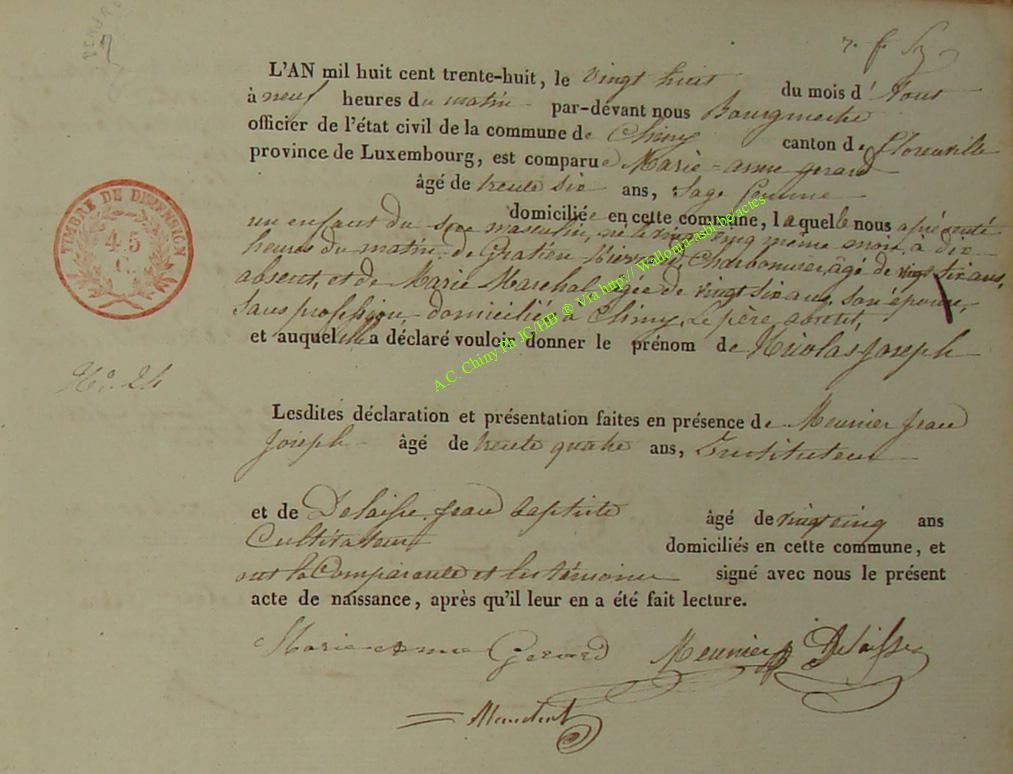 L'AN mil huit cent trente-huit, le vingt huit du mois d' Aout
à neuf heures du matin par-devant nous Bourgmestre
officier de l'état civil de la commune de Chiny canton de Florenville
province de Luxembourg, est comparue Marie-anne gerard
âgé de trente six ans, Sage femme
domiciliée en cette commune, laquelle nous a présenté
un enfant du sexe masculin, né le vingt cinq même mois à dix
heures du matin, de Gratien Charbonnier, âgé de vingt six ans,
absent, et de Marie Marchal agée de vingt six ans, son épouse,
sans profession domiciliés à Chiny, Le père absent,
et auquel elle a déclaré vouloir donner le prénom de Nicolas Joseph
TIMBRE DE DIMENSION
45
C.
N.o 24
Lesdites déclaration et présentation faites en présence de Meunier Jean
Joseph âgé de trente quatre ans, Instituteur
et de Delaisse jean baptiste âgé de vingt cinq ans
Cultivateur domiciliés en cette commune, et
ont la Comparante et les témoins signé avec nous le présent
acte de naissance, après qu'il leur en a été fait lecture.
Marie Anne Gerard Meunier jj Delaisse
A.C. Chiny Ph JG/HB ® Via http://Wallonia-asbl.be/actes